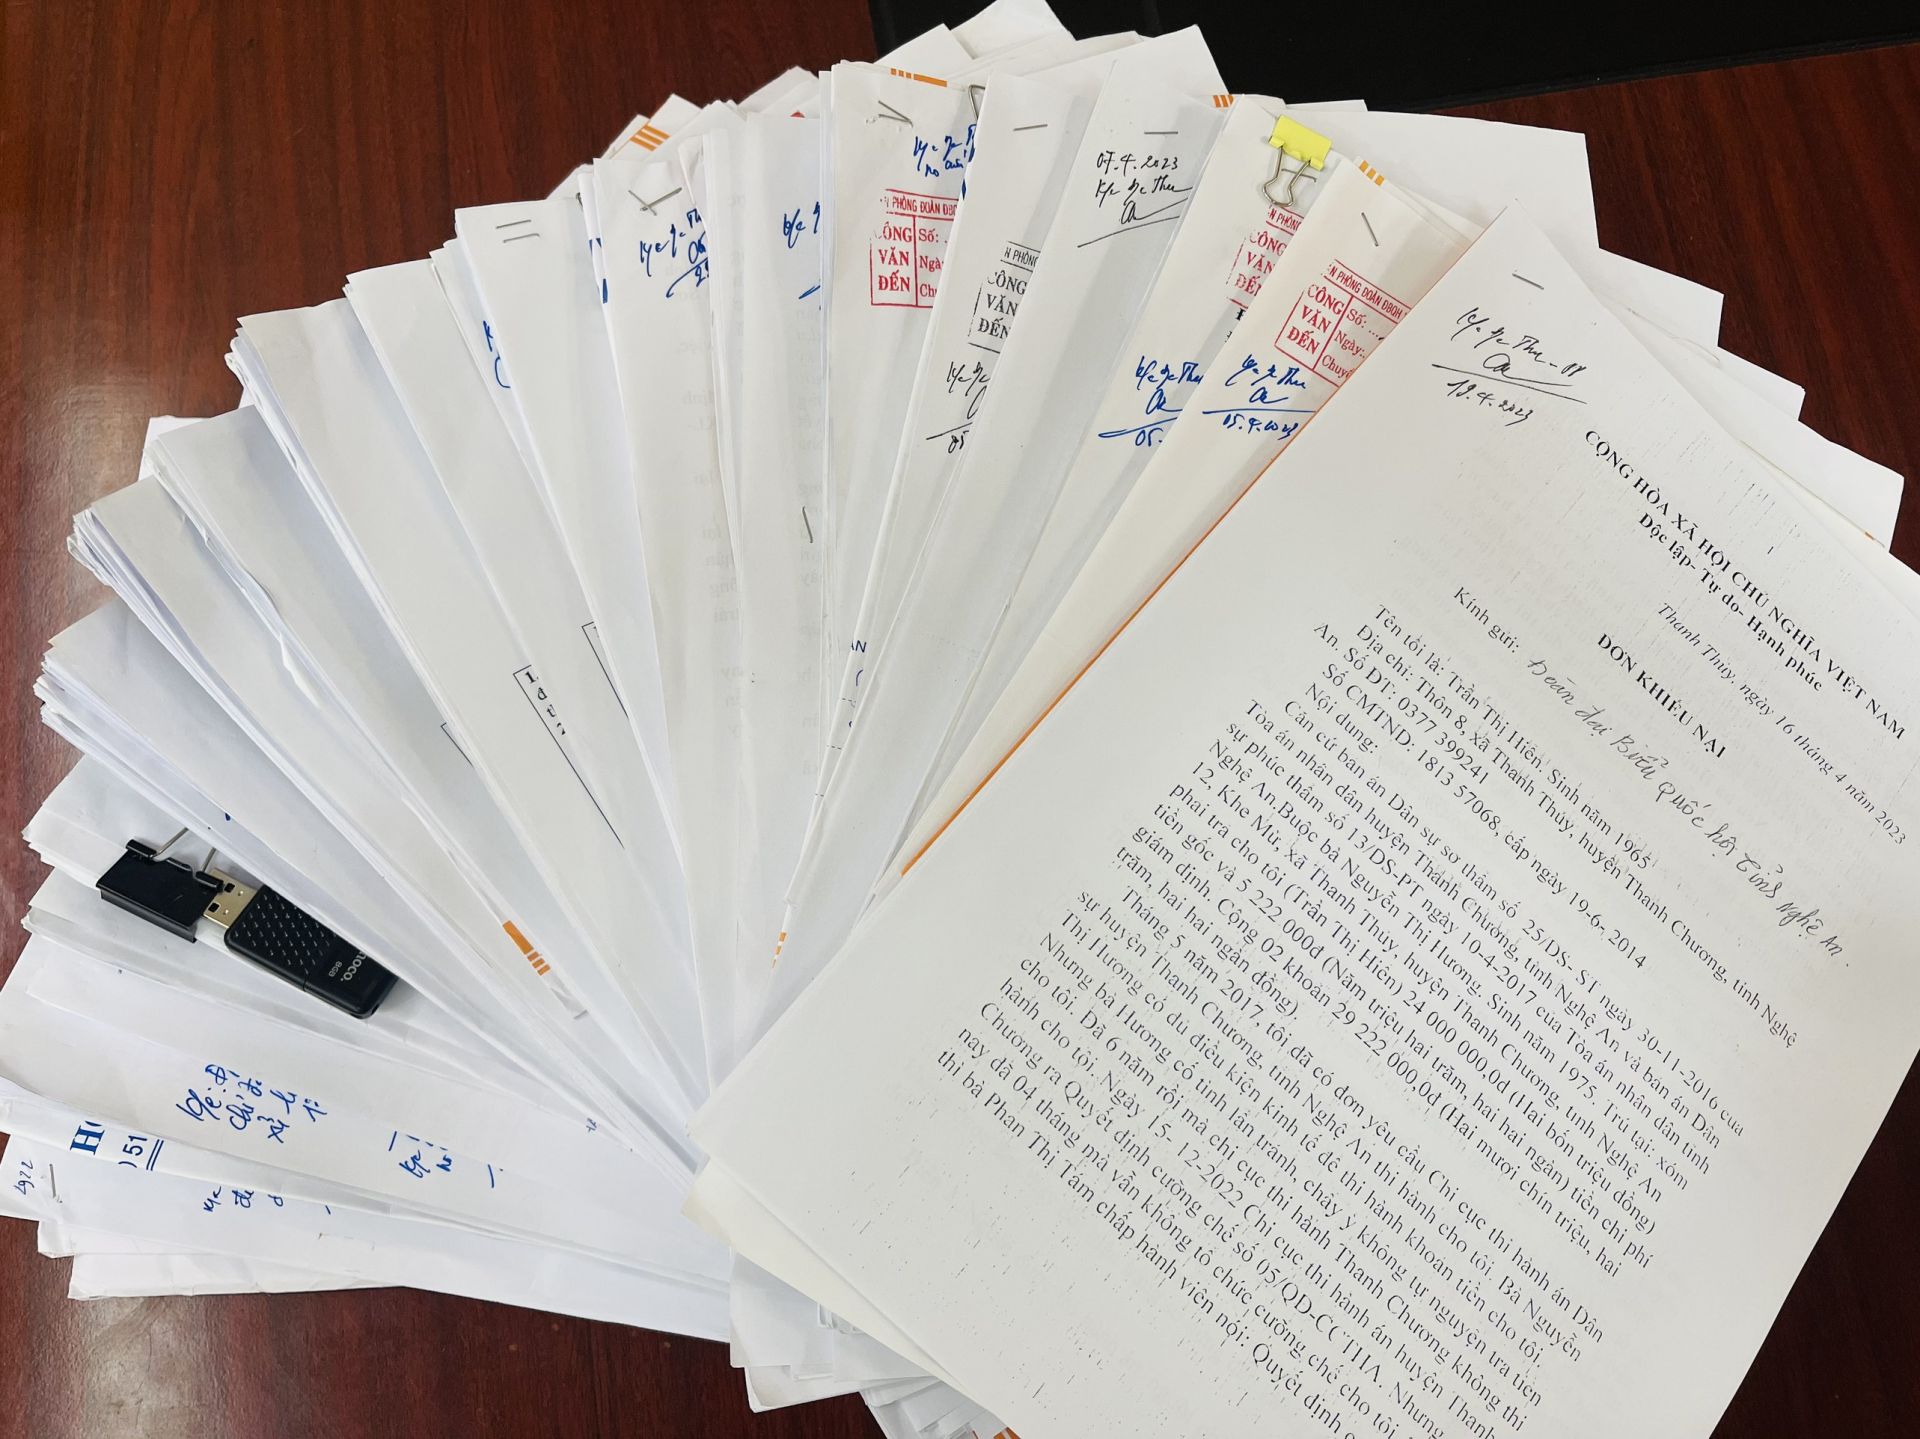 19.4.2023
CỘNG HÒA XÃ HỘI CHỦ NGHĨA VIỆT NAM
Độc lập- Tự do- Hạnh phúc
Thanh Thủy, ngày 16 tháng 4 năm 2023
ĐƠN KHIẾU NẠI
Kính gửi: Đoàn đại Biểu Quốc hội tỉnh Nghệ An.
Tên tôi là: Trần Thị Hiên. Sinh năm 1965
Địa chỉ: Thôn 8, xã Thanh Thủy, huyện Thanh Chương, tỉnh Nghệ
An. Số ĐT: 0377 399241
Số CMTND: 1813 57068, cấp ngày 19-6- 2014
Nội dung:
Căn cứ bản án Dân sự sơ thẩm số 25/DS- ST ngày 30-11-2016 của
Tòa án nhân dân huyện Thanh Chương, tỉnh Nghệ An và bản án Dân
sự phúc thẩm số 13/DS-PT ngày 10-4-2017 của Tòa án nhân dân tỉnh
Nghệ An.Buộc bà Nguyễn Thị Hương. Sinh năm 1975. Trú tại: xóm
12, Khe Mừ, xã Thanh Thủy, huyện Thanh Chương, tỉnh Nghệ An
phải trả cho tôi (Trần Thị Hiên) 24 000 000,0đ (Hai bốn triệu đồng)
tiền gốc và 5 222 000đ (Năm triệu hai trăm, hai hai ngàn) tiền chi phí
giám định. Cộng 02 khoản 29 222 000,0đ (Hai mươi chín triệu, hai
trăm, hai hai ngàn đồng).
Tháng 5 năm 2017, tôi đã có đơn yêu cầu Chi cục thi hành án Dân
sự huyện Thanh Chương, tỉnh Nghệ An thi hành cho tôi. Bà Nguyễn
Thị Hương có đủ điều kiện kinh tế để thi hành khoản tiền cho tôi.
Nhưng bà Hương cố tình lẩn tránh, chây ỳ không tự nguyện trả tiền
cho tôi. Đã 6 năm rồi mà chi cục thi hành Thanh Chương không thi
hành cho tôi. Ngày 15- 12-2022 Chi cục thi hành án huyện Thanh
Chương ra Quyết định cưỡng chế số 05/QĐ-CCTHA. Nhưng
nay đã 04 tháng mà vẫn không tổ chức cưỡng chế cho tôi
thì bà Phan Thị Tám chấp hành viên nói: Quyết định
N PHÒNG ĐOÀN ĐBQH
CÔNG
VĂN
ĐẾN
Số: ....
Ngày:
Chuyể
05.4.2023
CÔNG
VĂN
ĐẾN
05.
07.4.2023
N PHÒNG
CÔNG
VĂN
ĐẾN
05
N PHÒNG ĐOÀN ĐBQ
CÔNG
VĂN
ĐẾN
Số: .
Ngà
Ch
hoco.
8GB
H
051